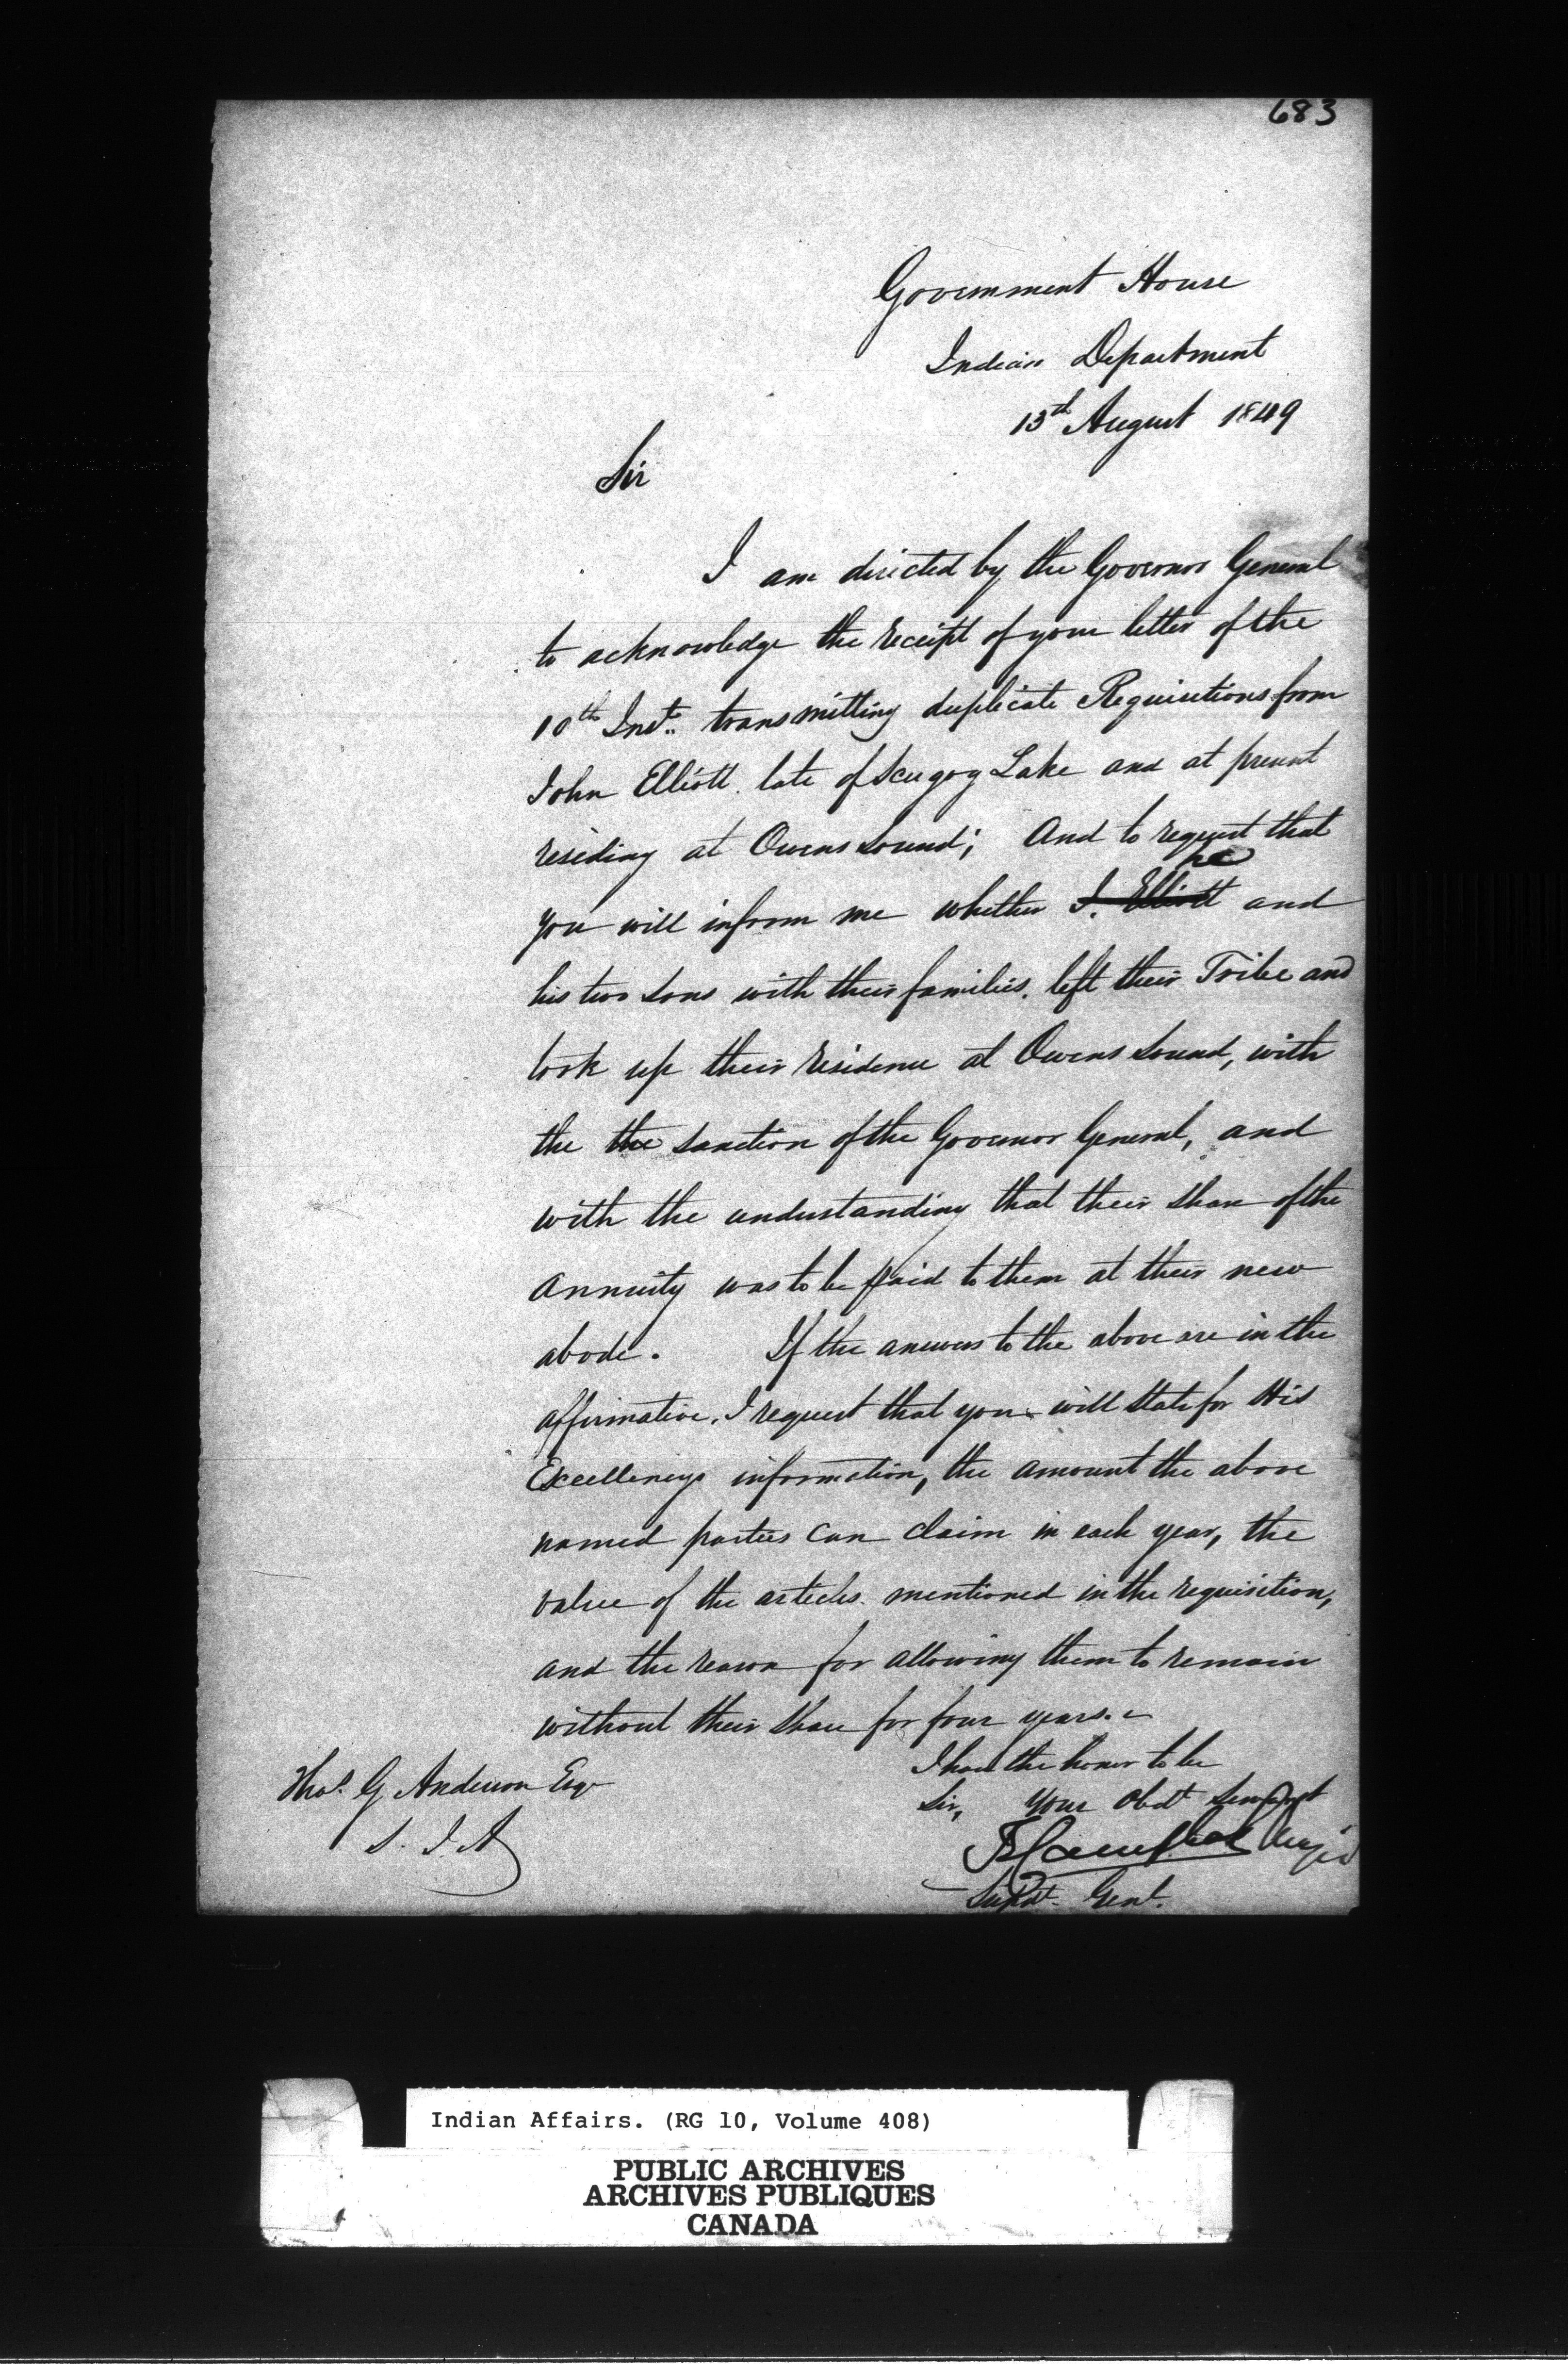 683
Government House
Indian Department
13th August 1849
Sir
I am directed by the Governor General
to acknowledge the receipt of your letter of the
10th Inst. transmitting duplicate Requisitions from
John Elliott late of Scugog Lake and at present
residing at Owens Sound; And to request that
he
you will inform me whether J. Elliott and
his two sons with their families, left their Tribe and
took up their residence at Owens Sound, with
the the sanction of the Governor General, and
with the understanding that their share of the
annuity was to be paid to them at their new
abode. If the answers to the above are in the
affirmative, I request that you will state for His
Excellencys information, the amount the above
named parties can claim in each year, the
value of the articles mentioned in the requisition,
and the reason for allowing them to remain
without their share for four years.
I have the honor to be
Sir, Your Obdt Servant
Thos. G Anderson Esqr
S. I. A
T E Campbell Major
Supdt. Genl.
Indian Affairs. (RG 10, Volume 408)
PUBLIC ARCHIVES
ARCHIVES PUBLIQUES
CANADA